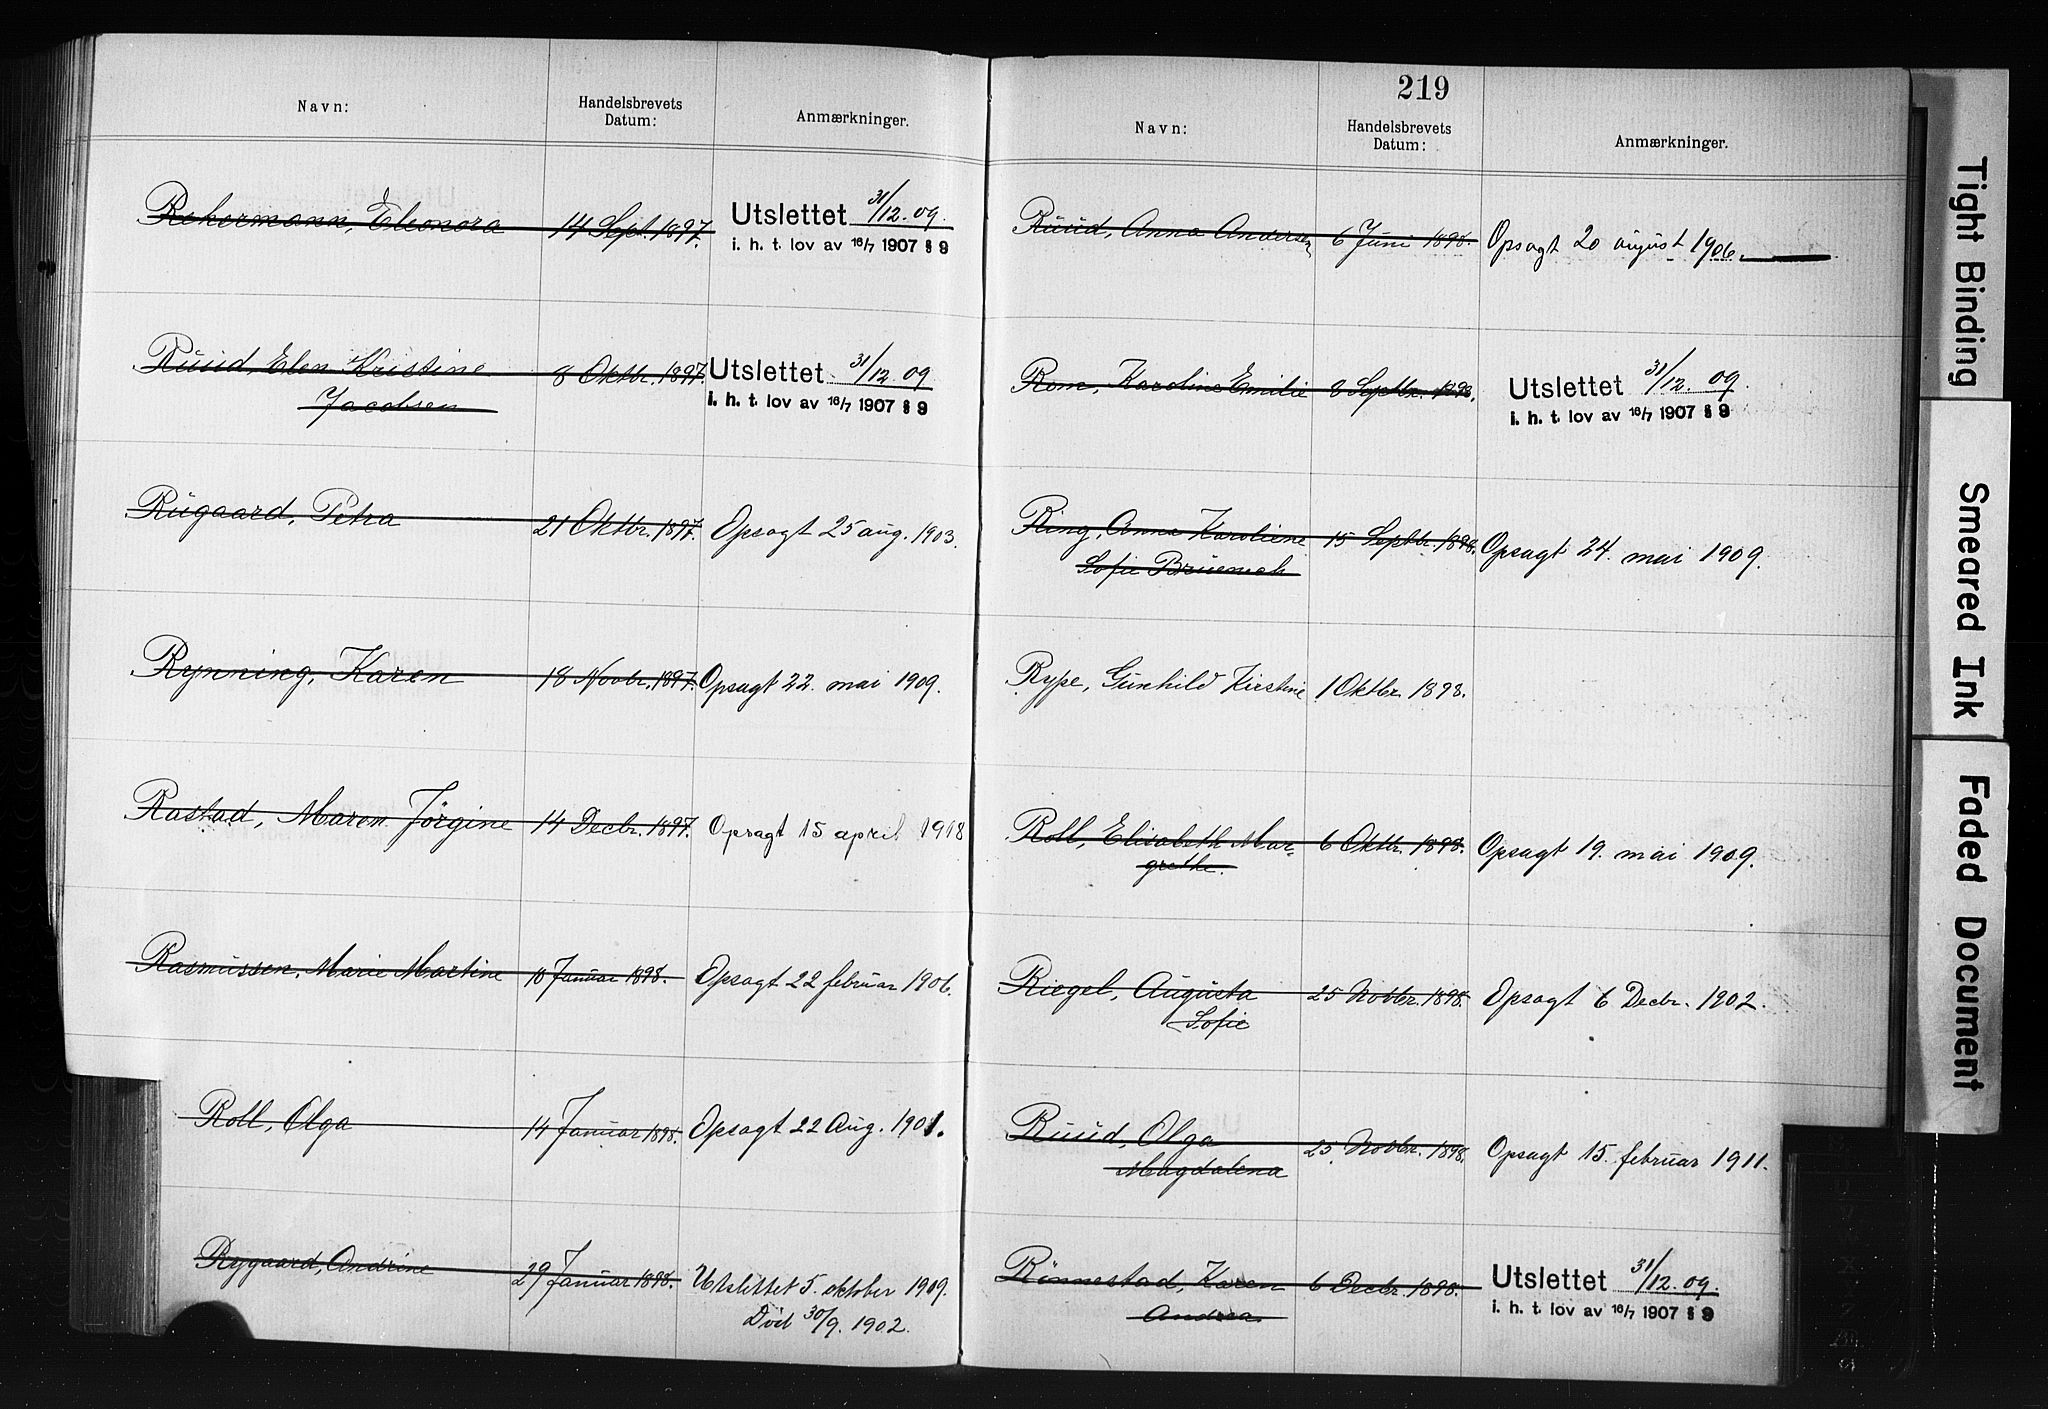 Navn:
Handelsbrevets
Datum:
Anmærkninger.
Rekermann, Eleonora 14 Sept. 1897. Utslettet 31/12. 09.
i. h. t. lov av 16/7 1907 § 9
Ruud, Elen Kristine 8 Oktbr. 1897. Utslettet 31/12. 09
Jacobsen i. h. t. lov av 16/7 1907 § 9
Rugaard, Petra 21 Oktbr. 1897. Opsagt 25 aug. 1903.
Rynning, Karen 18 Novbr. 1897. Opsagt 22. mai 1909.
Rastad, Maren Jørgine 14 Decbr. 1897. Opsagt 15 april 1918
Rasmussen, Marie Martine 18 Januar 1898. Opsagt 22 februar 1906.
Roll, Olga 14 Januar 1898. Opsagt 22 Aug. 1901.
Rygaard, Andrine 29 Januar 1898. Utslettet 5. oktober 1909.
Død 30/9. 1902.
219
Navn:
Handelsbrevets
Datum:
Anmærkninger.
Ruud, Anna Andersen 6 Juni 1898. Opsagt 20 august 1906.
Rom, Karoline Emilie 8 Septbr. 1898. Utslettet 31/12. 09.
i. h. t. lov av 16/7 1907 § 9
Ring, Anna Karoliene 15 Septbr. 1898. Opsagt 24. mai 1909.
Sofie Bruenech
Rype, Gunhild Kirstine 1 Oktbr. 1898.
Roll, Elisabeth Mar- 6 Oktbr. 1898. Opsagt 19. mai 1909.
grethe.
Riegel, Augusta 25 Novbr. 1898. Opsagt 6 Decbr. 1902.
Sofie
Ruud, Olga 25 Novbr. 1898. Opsagt 15. februar 1911.
Magdalena
Rönnestad, Karen 6 Decbr. 1898. Utslettet 31/12. 09.
Andrea. i. h. t. lov av 16/7 1907 § 9
Tight Binding
Smeared Ink
Faded Document